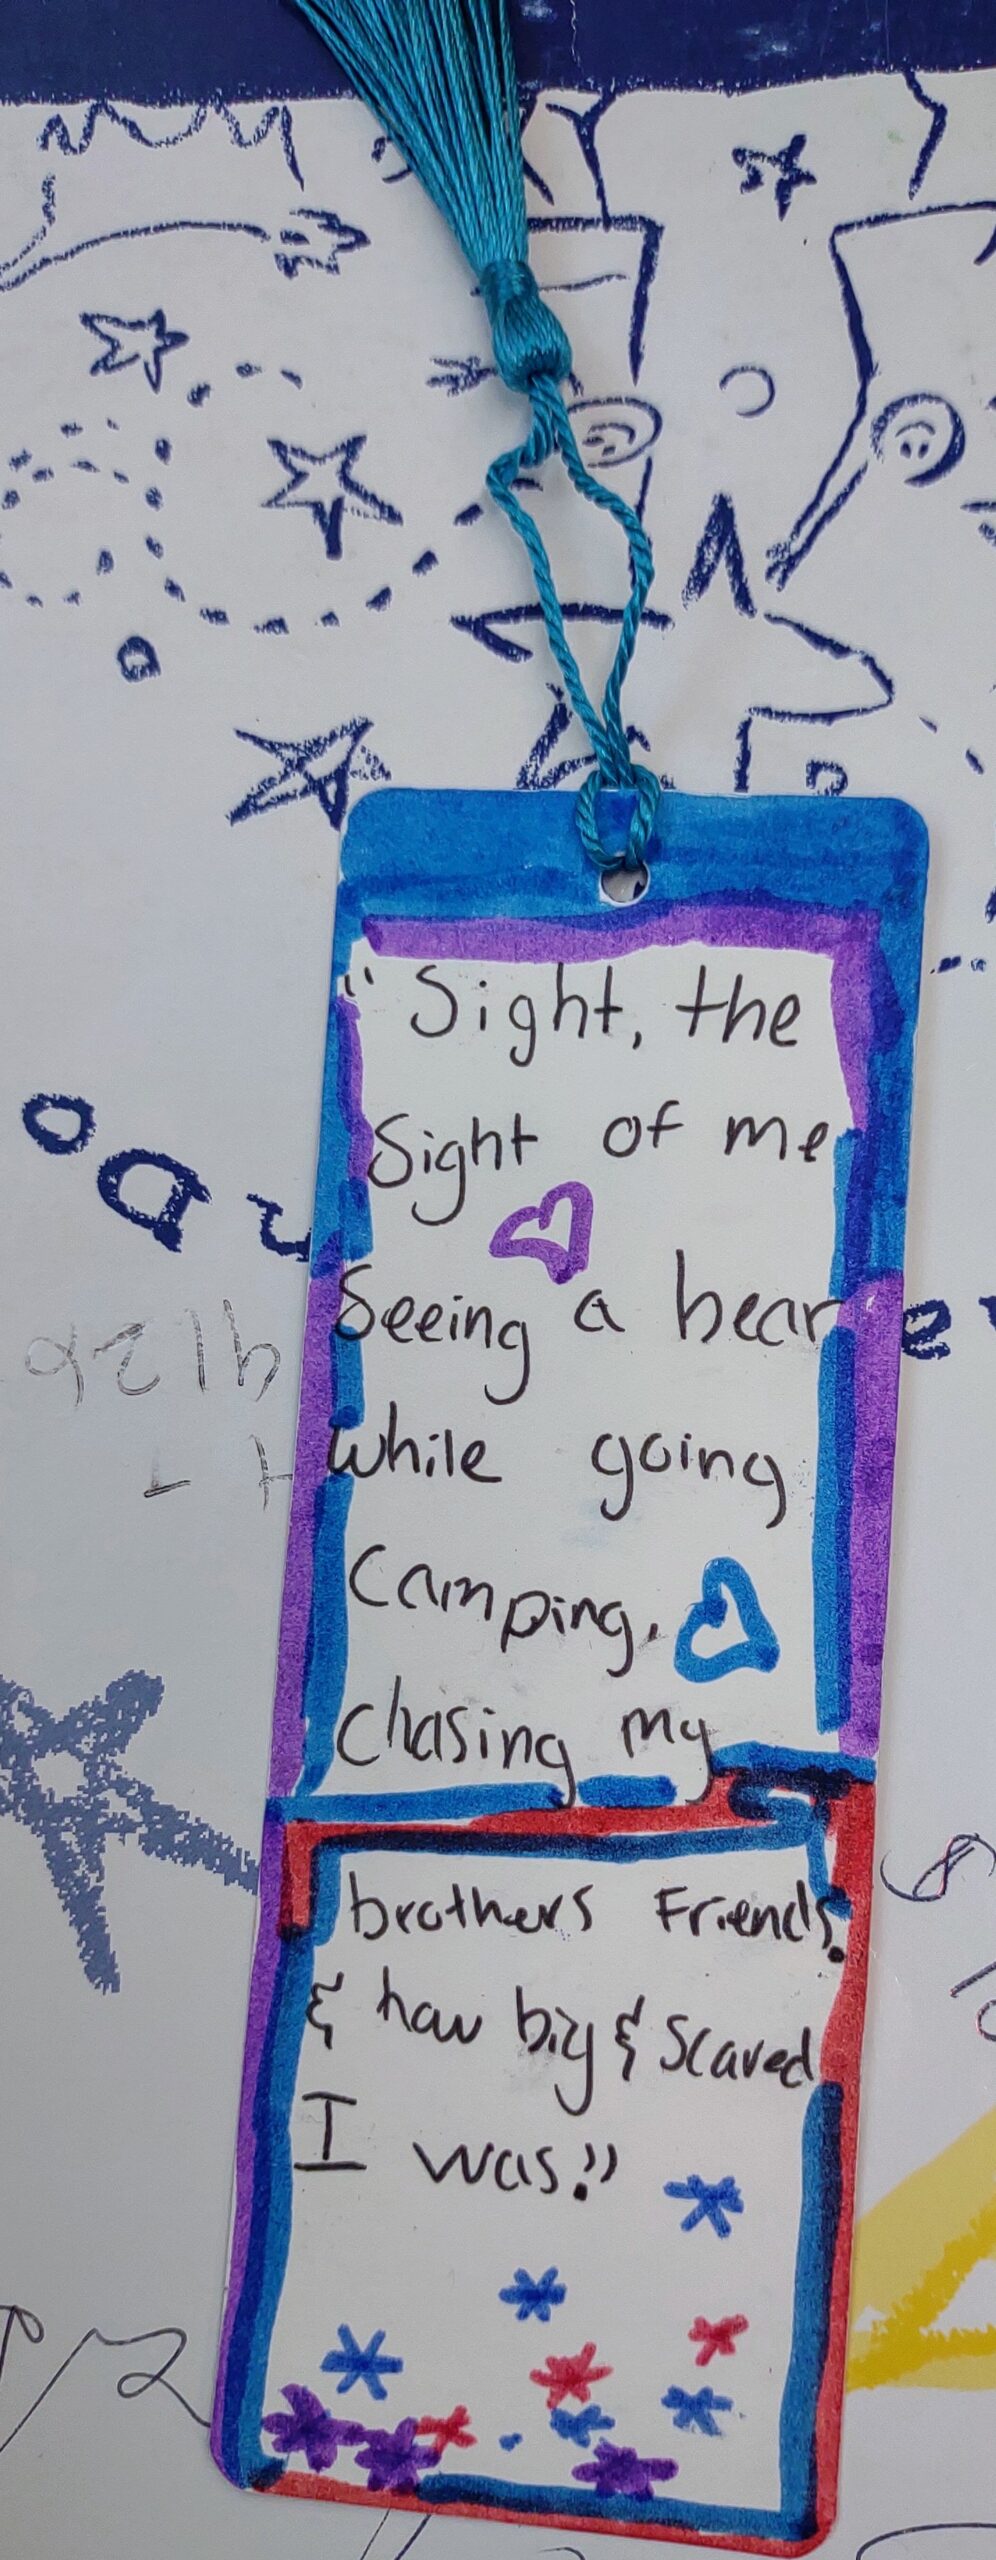 " Sight, the
Sight of me
Seeing a bear
while going
Camping,
Chasing my
brothers Friends.
& how big & Scared
I was."